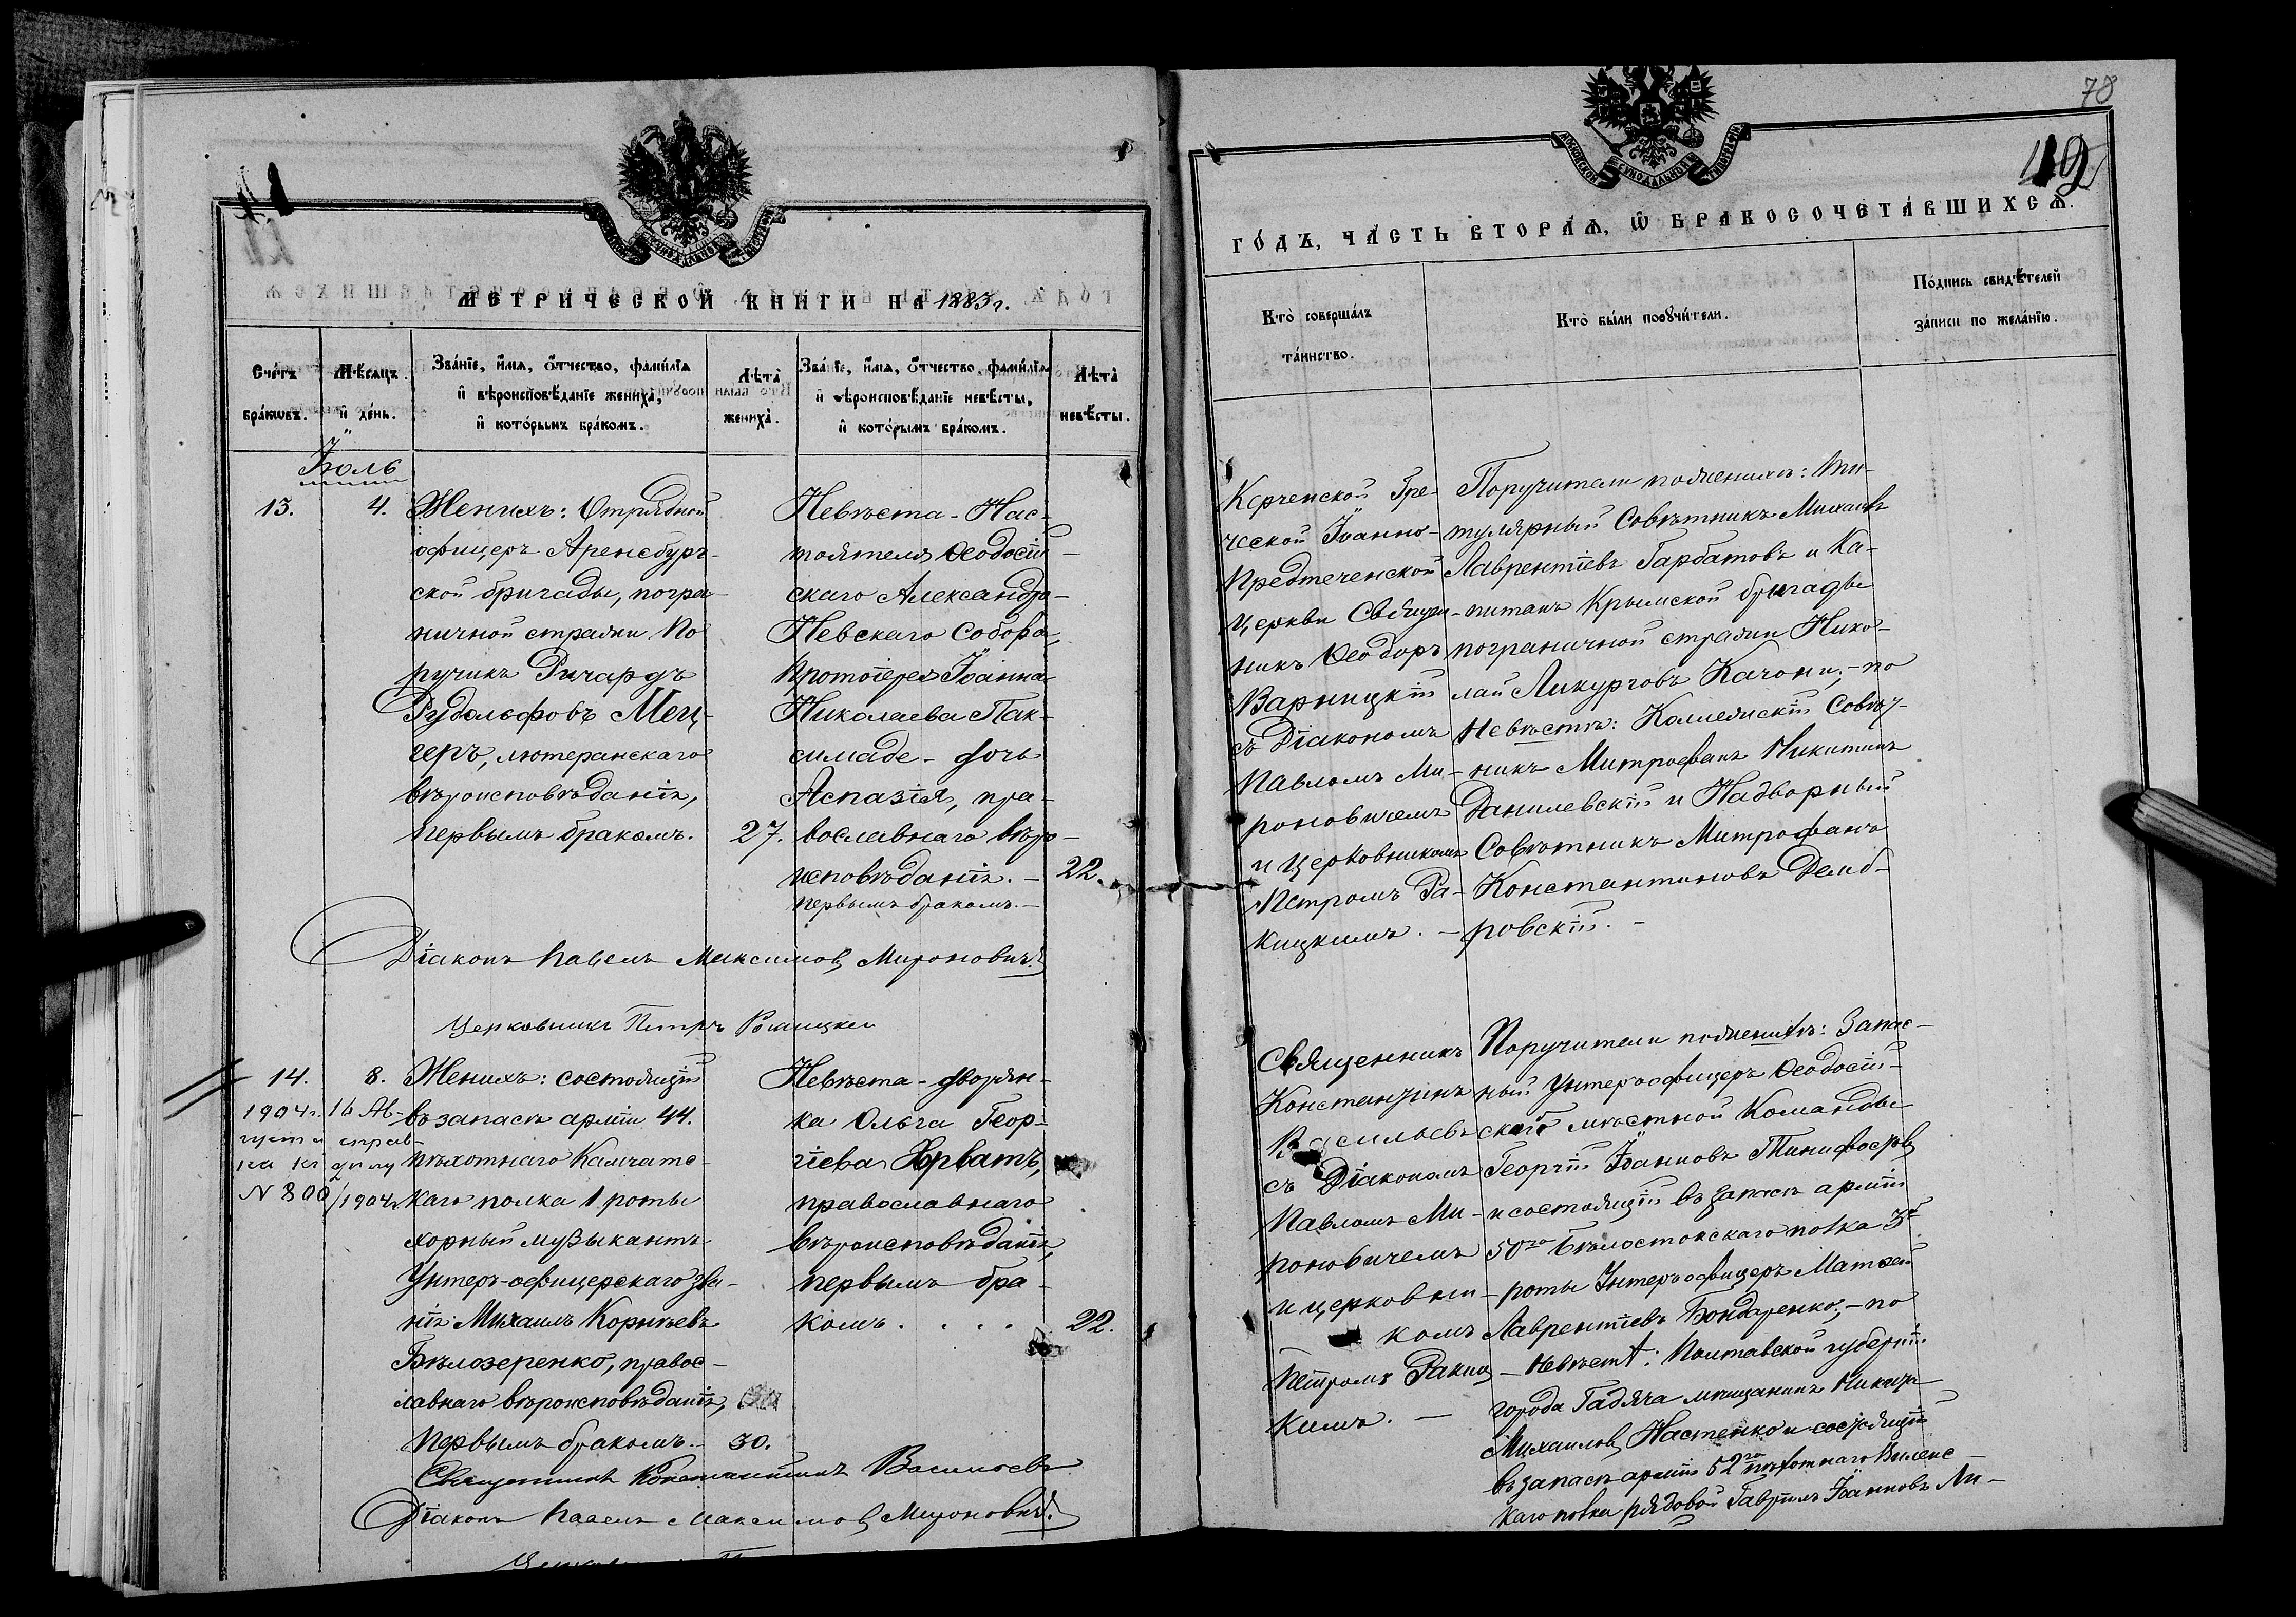 41
МЕТРИЧЕСКОЙ КНИГИ НА 1883 г.
Счетъ браковъ.
Мѣсяцъ и день.
Званіе, имя, отчество, фамилія
и вѣроисповѣданіе жениха,
и которымъ бракомъ.
Лѣта
жениха.
Званіе, имя, отчество, фамилія
и вѣроисповѣданіе невѣсты,
и которымъ бракомъ.
Лѣта
невѣсты.
Іюль
13.
4.
Женихъ: Отрядной
офицеръ Аренсбург-
ской бригады, погра-
ничной стражи По
ручикъ Ричардъ
Рудольфовъ Мец-
геръ, лютеранскаго
вѣроисповѣданія,
первымъ бракомъ.
27.
Невѣста - Нас-
тоятеля Ѳеодосій-
скаго Александро-
Невскаго Собора,
Протоіерея Іоанна
Николаева Пак-
симаде - дочь
Аспазія, пра-
вославнаго вѣро-
исповѣданія. -
первымъ бракомъ. -
22.
Діаконъ Павелъ Максимовъ Мироновичъ
Церковникъ Петръ Ракицкій
14.
8.
1904 г. 16 Ав-
густа справ-
ка къ дѣлу
N 800/1904 г.
Женихъ: состоящій
въ запасѣ арміи 44.
пѣхотнаго Камчатс-
каго полка 1 роты
хорный музыкантъ
Унтеръ-офицерскаго зва-
нія Михаилъ Корнѣевъ
Бѣлозеренко, правос-
лавнаго вѣроисповѣданія,
первымъ бракомъ. -
30.
Невѣста - дворян-
ка Ольга Геор-
гіева Хорватъ,
православнаго
вѣроисповѣданія,
первымъ бра-
комъ. . . . .
22.
Священникъ Константинъ Васильевъ
Діаконъ Павелъ Максимовъ Мироновичъ
78
МОСКОВСКОЙ СѴНОДАЛЬНОЙ ТИПОГРАФІИ
ГОДЪ, ЧАСТЬ ВТОРАЯ, Ѡ БРАКОСОЧЕТАВШИХСЯ.
Кто совершалъ
таинство.
Кто были поручители.
Подпись свидѣтелей
записи по желанію.
Керченской Гре-
ческой Іоанно-
Предтеченской
Церкви Священ-
никъ Ѳеодоръ
Варницкій
съ Діакономъ
Павломъ Ми-
роновичемъ
и Церковникомъ
Петромъ Ра-
кицкимъ. -
Поручители по женихѣ: Ти-
тулярный Совѣтникъ Михаилъ
Лаврентіевъ Гарбатовъ и Ка-
питанъ Крымской бригады
пограничной стражи Нико-
лай Ликурговъ Качони; - по
Невѣстѣ: Коллежскій Совѣт-
никъ Митрофанъ Никитинъ
Данилевскій и Надворный
Совѣтникъ Митрофанъ
Константиновъ Домб-
ровскій. -
Священникъ
Константинъ
Васильевъ
съ Діакономъ
Павломъ Ми-
роновичемъ
и церковни-
комъ
Петромъ Ракиц-
кимъ. -
Поручители по женихѣ: Запас-
ный Унтеръ-офицеръ Ѳеодосій-
ской мѣстной Команды
Георгій Іоанновъ
и состоящій въ запасѣ арміи
50го Бѣлостокскаго полка 3й
роты Унтеръ-офицеръ Матвей
Лаврентіевъ Бондаренко; - по
Невѣстѣ: Полтавской губерніи
города Гадяча мѣщанинъ Никита
Михаиловъ Настенко и состоящій
въ запасѣ арміи 52го пѣхотнаго Виленс-
каго полка рядовой Гавріилъ Іоанновъ Ли-